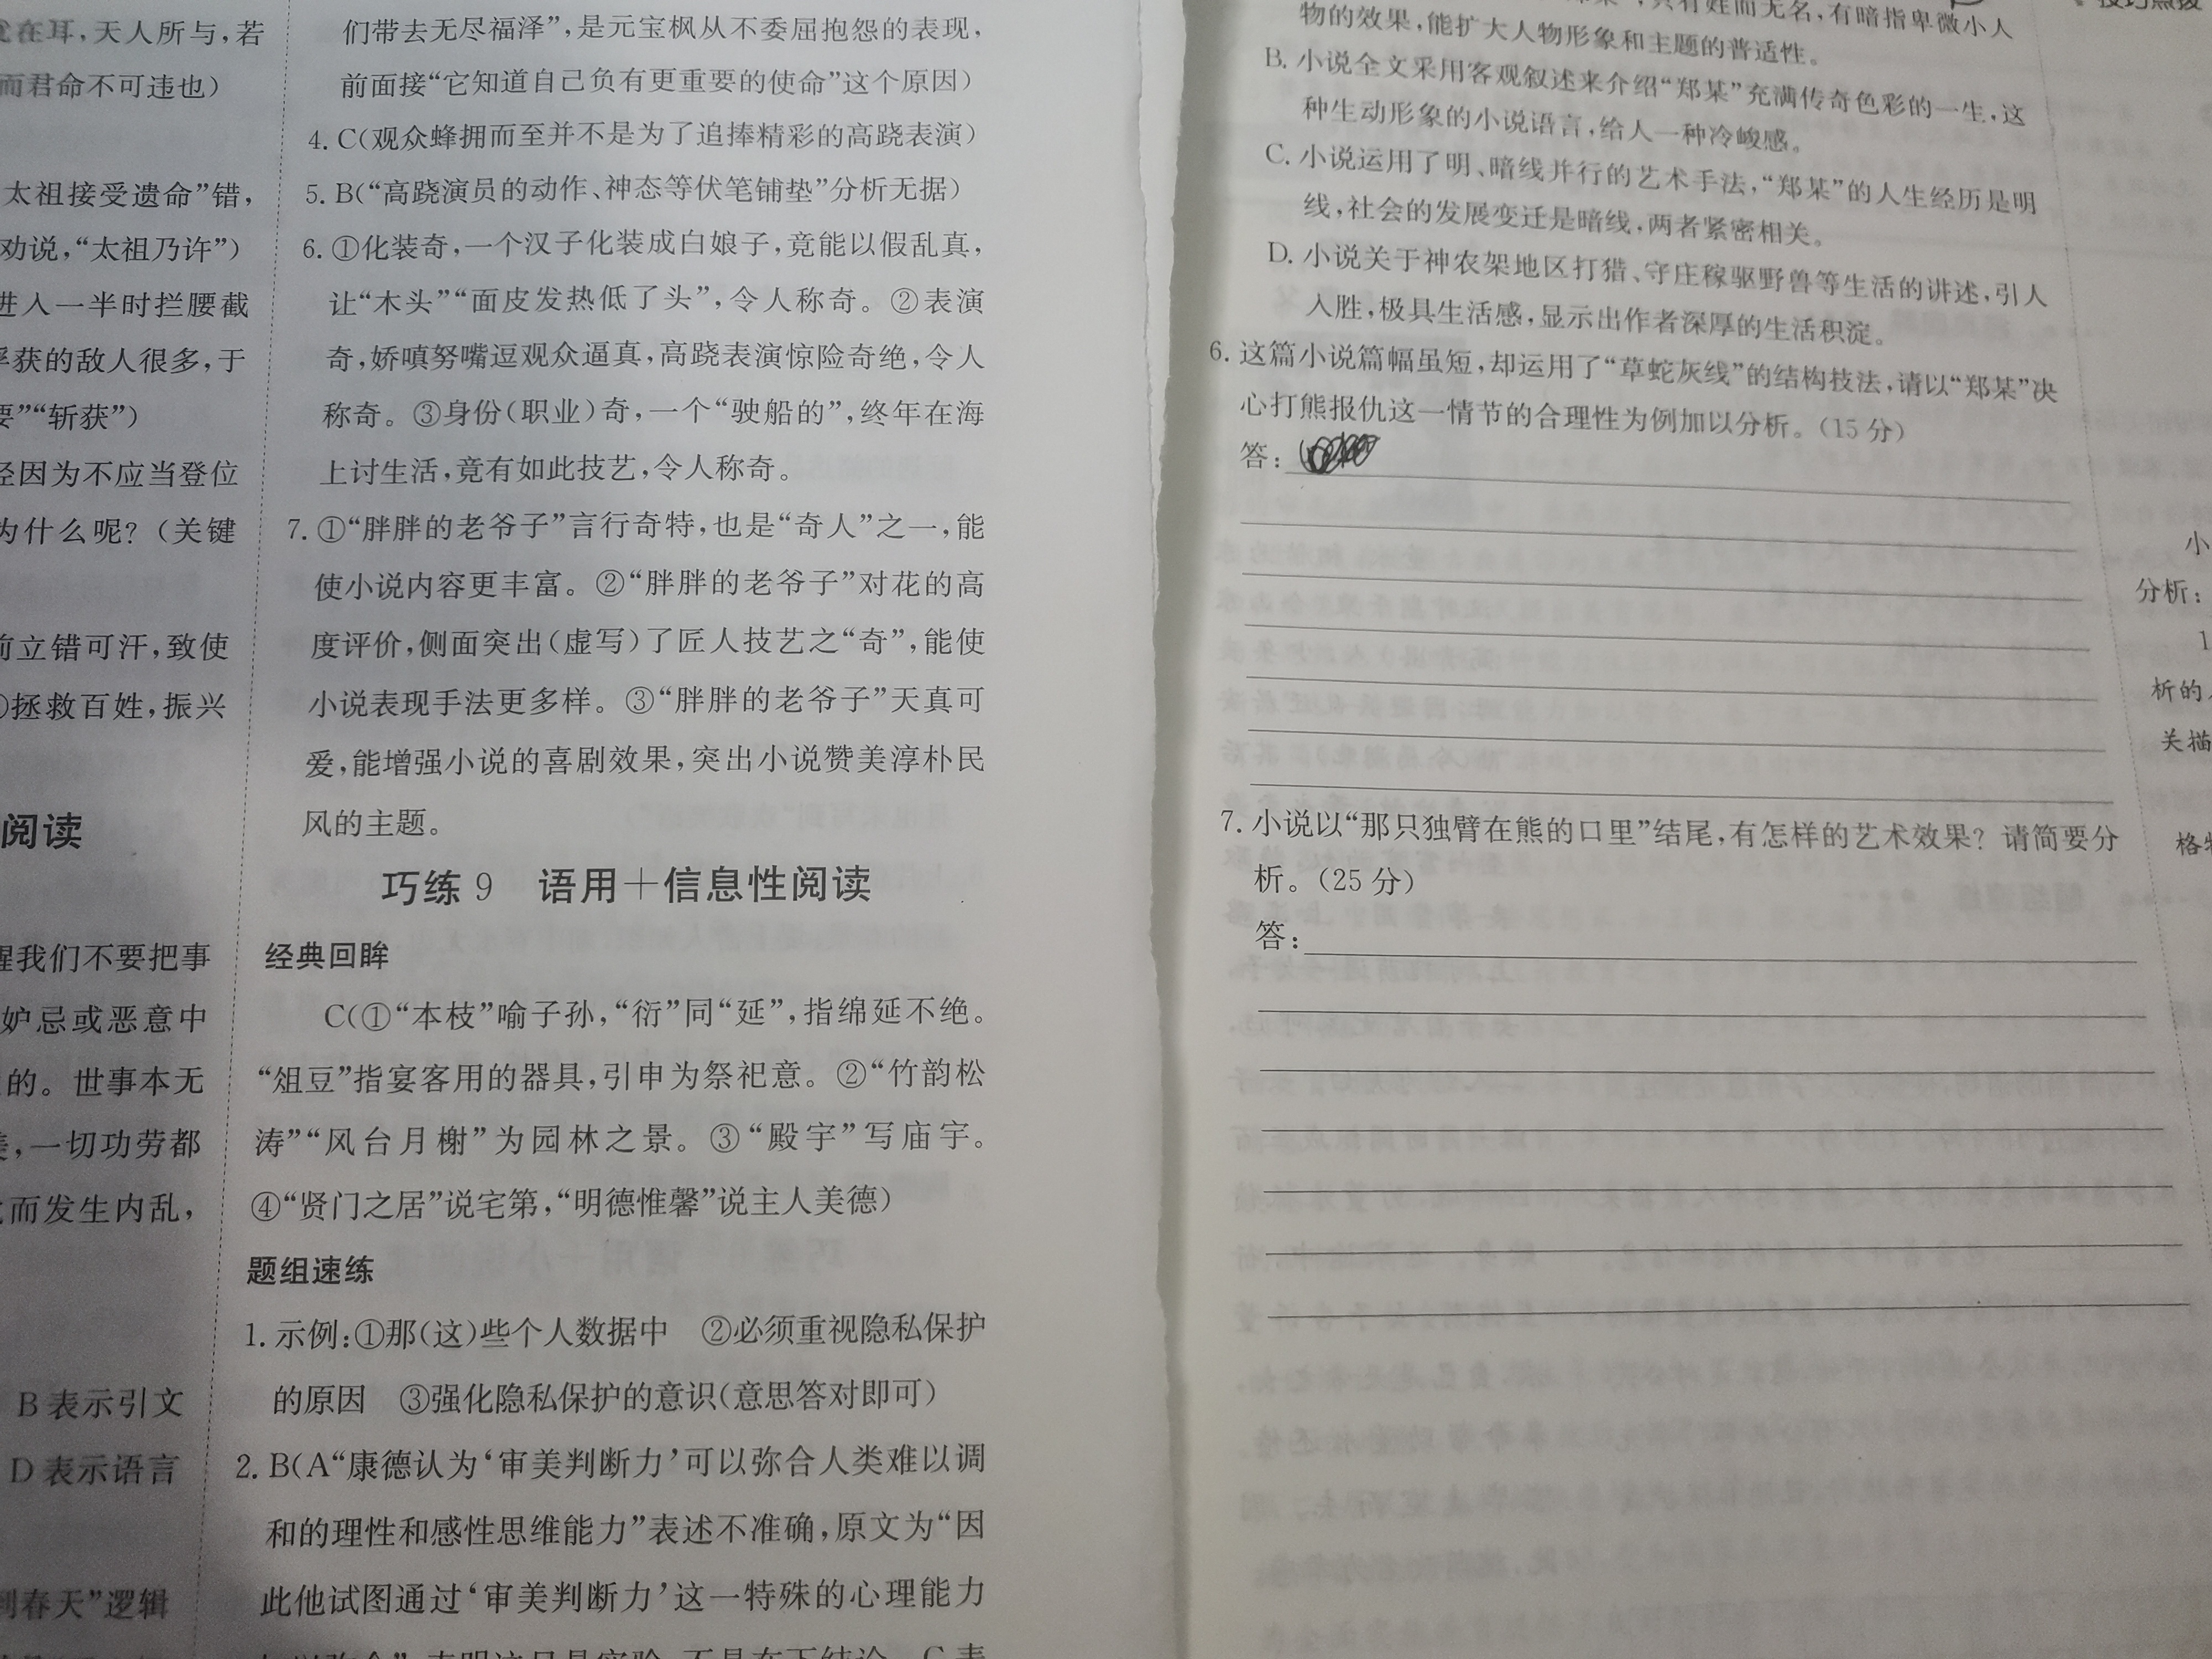 在耳,天人所与,若
而君命不可违也)
太祖接受遗命”错,
劝说,“太祖乃许”)
进入一半时拦腰截
获的敌人很多,于
要”“斩获”)
经因为不应当登位
为什么呢?(关键
前立错可汗,致使
拯救百姓,振兴
阅读
醒我们不要把事
妒忌或恶意中
的。世事本无
,一切功劳都
而发生内乱,
B表示引文
D表示语言
到春天”逻辑
们带去无尽福泽”,是元宝枫从不委屈抱怨的表现,
前面接“它知道自己负有更重要的使命”这个原因)
4. C(观众蜂拥而至并不是为了追捧精彩的高跷表演)
5. B(“高跷演员的动作、神态等伏笔铺垫”分析无据)
6. ①化装奇,一个汉子化装成白娘子,竟能以假乱真,
让“木头”“面皮发热低了头”,令人称奇。②表演
奇,娇嗔努嘴逗观众逼真,高跷表演惊险奇绝,令人
称奇。③身份(职业)奇,一个“驶船的”,终年在海
上讨生活,竟有如此技艺,令人称奇。
7. ①“胖胖的老爷子”言行奇特,也是“奇人”之一,能
使小说内容更丰富。②“胖胖的老爷子”对花的高
度评价,侧面突出(虚写)了匠人技艺之“奇”,能使
小说表现手法更多样。③“胖胖的老爷子”天真可
爱,能增强小说的喜剧效果,突出小说赞美淳朴民
风的主题。
巧练9 语用+信息性阅读
经典回眸
C(①“本枝”喻子孙,“衍”同“延”,指绵延不绝。
“俎豆”指宴客用的器具,引申为祭祀意。②“竹韵松
涛”“风台月榭”为园林之景。③“殿宇”写庙宇。
④“贤门之居”说宅第,“明德惟馨”说主人美德)
题组速练
1. 示例:①那(这)些个人数据中 ②必须重视隐私保护
的原因 ③强化隐私保护的意识(意思答对即可)
2. B(A“康德认为‘审美判断力’可以弥合人类难以调
和的理性和感性思维能力”表述不准确,原文为“因
此他试图通过‘审美判断力’这一特殊的心理能力
”,只有姓而无名,有暗指卑微小人
物的效果,能扩大人物形象和主题的普适性。
B. 小说全文采用客观叙述来介绍“郑某”充满传奇色彩的一生,这
种生动形象的小说语言,给人一种冷峻感。
C. 小说运用了明、暗线并行的艺术手法,“郑某”的人生经历是明
线,社会的发展变迁是暗线,两者紧密相关。
D. 小说关于神农架地区打猎、守庄稼驱野兽等生活的讲述,引人
入胜,极具生活感,显示出作者深厚的生活积淀。
6. 这篇小说篇幅虽短,却运用了“草蛇灰线”的结构技法,请以“郑某”决
心打熊报仇这一情节的合理性为例加以分析。(15分)
答:
7. 小说以“那只独臂在熊的口里”结尾,有怎样的艺术效果?请简要分
析。(25分)
答:
技巧点拨
小
分析:
1
析的
关描
格